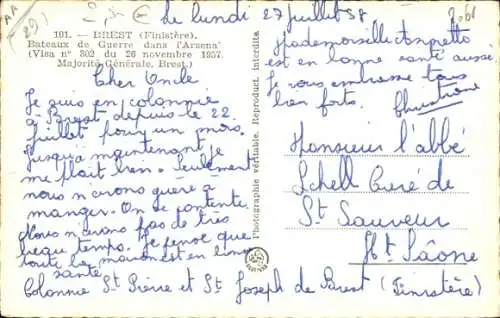 le lundi 27 juillet 58
101. - BREST (Finistère).
Bateaux de Guerre dans l'Arsenal
(Visa n° 302 du 26 novembre 1957.
Majorité Générale, Brest.)
Cher Oncle
Je suis en colonie
à Brest depuis le 22
juillet pour un mois.
Jusqu'a maintenant je
me plait bien. Seulement
nous n'avons guère a
manger. On se contente.
Nous n'avons pas de très
beau temps. Je pense que
toute la maison est en bonne
santé
Colonie St Pierre et St Joseph de Brest (Finistère)
Photographie véritable. Reproduct. interdite
Mademoiselle
est en bonne santé aussi
Je vous embrasse tous
bien forts.
Christiane
Monsieur l'abbé
Schell Curé de
St Sauveur
Hte Saône